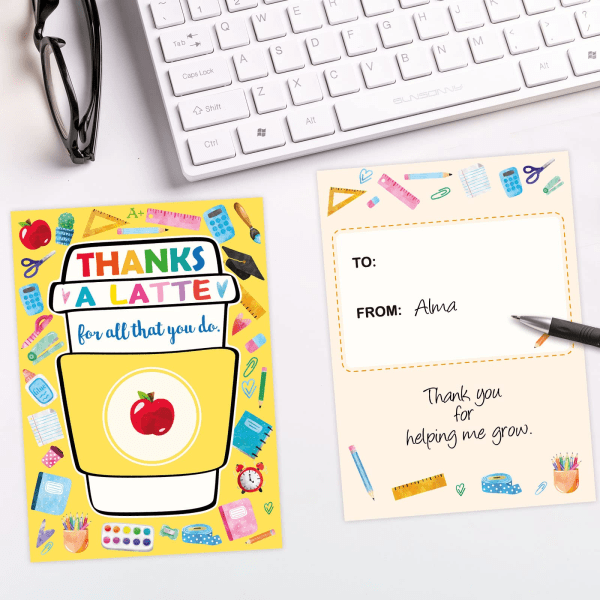 Tab
Q W E R T Y U I O P
Caps Lock
A S D F G H J K L
Shift
Z X C V B N M
Ctrl
Alt
Alt
Ctrl
A+
THANKS
A LATTE
for all that you do.
A+
TO:
FROM: Alma
Thank you
for
helping me grow.